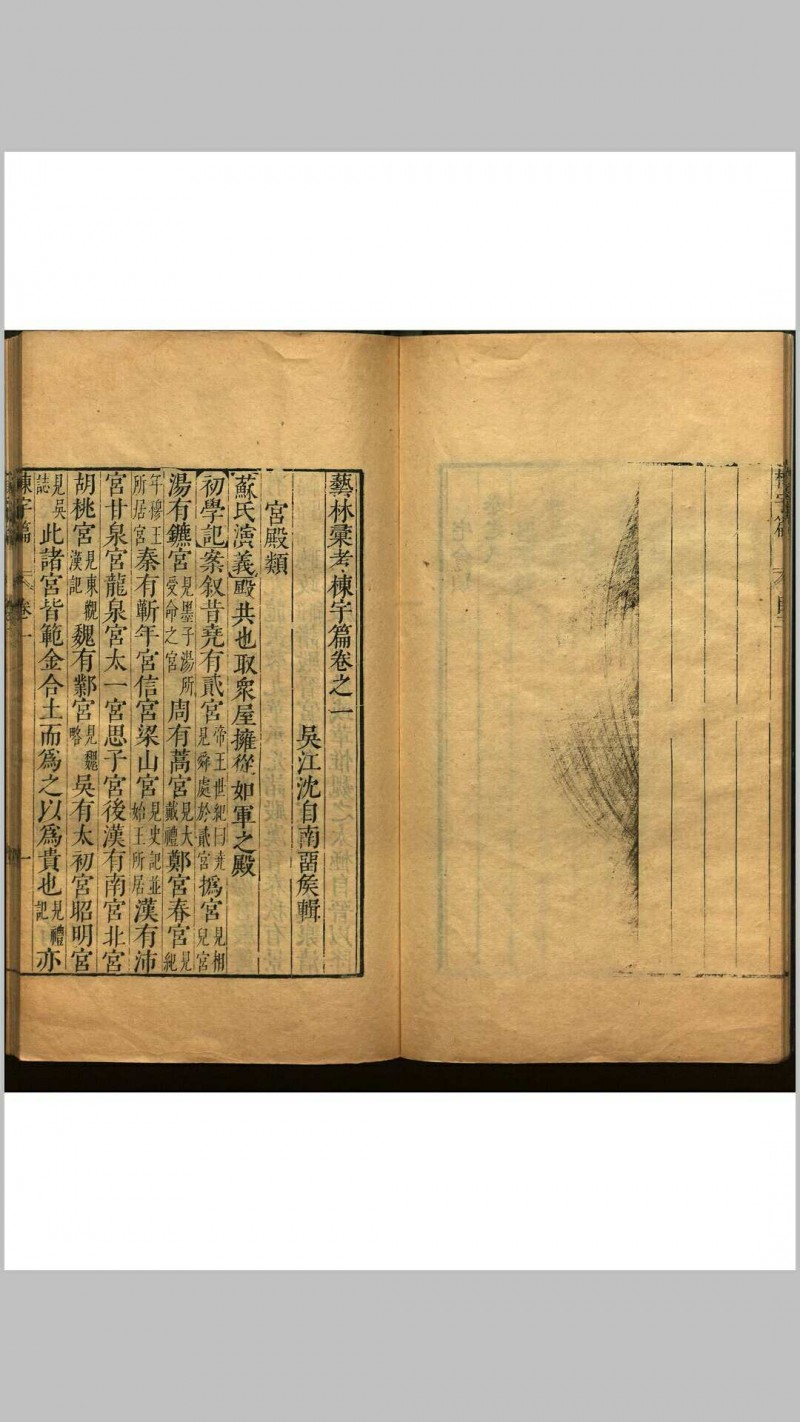 藝林彙考棟宇篇卷之一
吳江沈自南畱矦輯
宮殿類
蘇氏演義殿共也取衆屋擁從如軍之殿
初學記案叙昔堯有貳宮帝王世紀曰堯見舜處於貳宮撝宮見相兒宮
湯有鑣宮見墨子湯所受命之宮周有蒿宮見大戴禮鄭宮春宮見紀
年穆王所居宮秦有蘄年宮信宮梁山宮見史記並始王所居漢有沛
宮甘泉宮龍泉宮太一宮思子宮後漢有南宮北宮
胡桃宮見東觀漢記魏有鄴宮見魏略吳有太初宮昭明宮
見吳誌此諸宮皆範金合土而爲之以爲貴也見禮記亦
棟宇篇 卷一 一